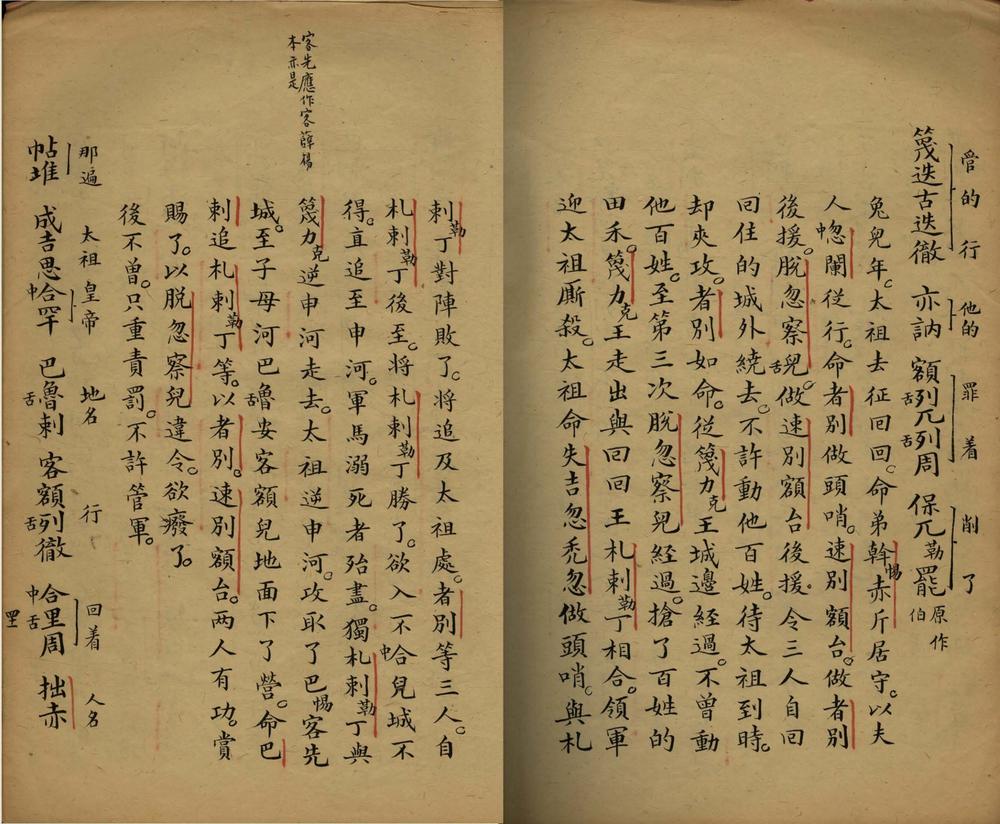 管的 行 他的 罪 着 削 了
篾迭古迭徹 亦訥 額舌列兀舌列周 保兀勒罷 原作伯
兔兒年。太祖去征回回。命弟斡惕赤斤居守。以夫
人中忽闌從行。命者別做頭哨。速別額台。做者別
後援。脫忽察舌兒。做速別額台後援。令三人自回
回住的城外繞去。不許動他百姓。待太祖到時。
却夾攻。者別如命。從篾力克王城邊經過。不曾動
他百姓。至第三次脫忽察兒經過。搶了百姓的
田禾。篾力克王走出與回回王札剌勒丁相合。領軍
迎太祖廝殺。太祖命失吉忽禿忽做頭哨。與札
剌勒丁對陣敗了。將追及太祖處。者別等三人。自
札剌勒丁後至。將札剌勒丁勝了。欲入不中合兒城不
得。直追至申河。軍馬溺死者殆盡。獨札剌勒丁與
篾力克逆申河走去。太祖逆申河。攻取了巴惕客先
城。至子母河巴舌魯安客額兒地面下了營。命巴
剌追札剌勒丁等。以者別。速別額台。兩人有功。賞
賜了。以脫忽察兒違令。欲癈了。
後不曾。只重責罰。不許管軍。
客先應作客薛楊
本亦是
那遍 太祖皇帝 地名 行 回着 人名
帖堆 成吉思中合罕 巴舌魯剌 客額舌列徹 中合舌里周 拙赤